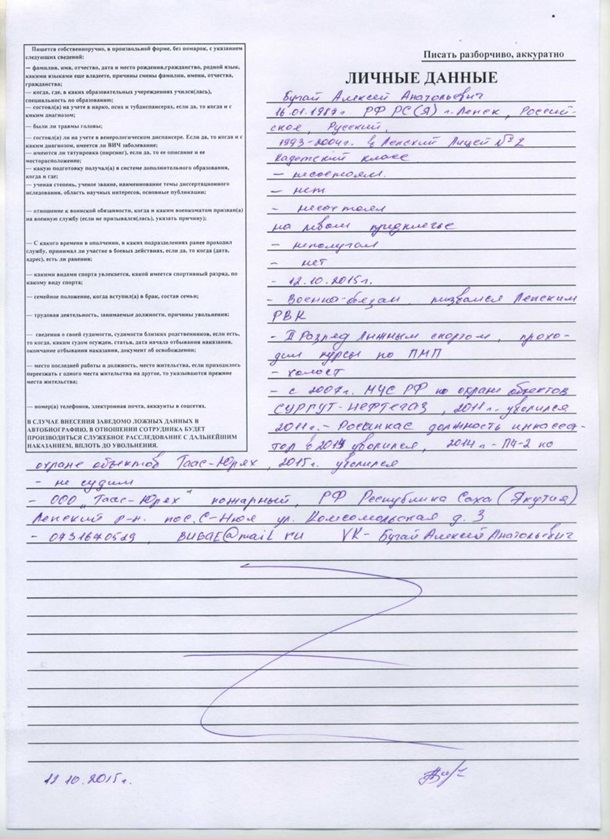 Пишется собственноручно, в произвольной форме, без помарок, с указанием
следующих сведений:
— фамилия, имя, отчество, дата и место рождения,гражданство, родной язык,
какими языками еще владеете, причины смены фамилии, имени, отчества,
гражданства;
— когда, где, в каких образовательных учреждениях учился(лась),
специальность по образованию;
— состоял(а) ли на учете в нарко, психо и тубдиспансерах, если да, то когда и с
каким диагнозом;
— были ли травмы головы;
— состоял(а) ли на учете в венерологическом диспансере. Если да, то когда и с
каким диагнозом, имеется ли ВИЧ заболевание;
— имеются ли татуировки (пирсинг), если да, то ее описание и ее
месторасположение;
— какую подготовку получал(а) в системе дополнительного образования,
когда и где;
— ученая степень, ученое звание, наименование темы диссертационного
исследования, область научных интересов, основные публикации;
— отношение к воинской обязанности, когда и каким военкоматом призван(а)
на военную службу (если не призывался(лась), указать причину);
— С какого времени в ополчении, в каких подразделениях ранее проходил
службу, принимал ли участие в боевых действиях, если да, то когда (дата,
адрес), есть ли ранения;
— какими видами спорта увлекается, какой имеется спортивный разряд, по
какому виду спорта;
— семейное положение, когда вступил(а) в брак, состав семьи;
— трудовая деятельность, занимаемые должности, причины увольнения;
— сведения о своей судимости, судимости близких родственников, если есть,
то когда, каким судом осужден, статья, дата начала отбывания наказания,
окончание отбывания наказания, документ об освобождении;
— место последней работы и должность, место жительства, если приходилось
переезжать с одного места жительства на другое, то указываются прежние
места жительства;
— номер(а) телефонов, электронная почта, аккаунты в соцсетях.
В СЛУЧАЕ ВНЕСЕНИЯ ЗАВЕДОМО ЛОЖНЫХ ДАННЫХ В
АВТОБИОГРАФИЮ, В ОТНОШЕНИИ СОТРУДНИКА БУДЕТ
ПРОИЗВОДИТЬСЯ СЛУЖЕБНОЕ РАССЛЕДОВАНИЕ С ДАЛЬНЕЙШИМ
НАКАЗАНИЕМ, ВПЛОТЬ ДО УВОЛЬНЕНИЯ.
Писать разборчиво, аккуратно
ЛИЧНЫЕ ДАННЫЕ
Бугай Алексей Анатольевич
16.01.1987г РФ РС(Я) г. Ленск, Россий-
ское, Русский.
1993-2004г. Ленский Лицей №2
Кадетский класс
- несостоял.
- нет
- несостоял
на левом предплечье
- неполучал
- нет
- 12.10.2015г.
- Военно-обязан, призвался Ленским
РВК
- II Разряд Лыжным спортом, прохо-
дил курсы по ПМП
- холост
- с 2007г. МЧС РФ по охране объектов
СУРГУТ-НЕФТЕГАЗ, 2011г. уволился
2011г.- Росинкас должность инкасса-
тор в 2014 уволился, 2014г - ПЧ-2 по
охране объектов Таас-Юрях, 2015г. уволился
- не судим
- ООО "Таас-Юрях" пожарный, РФ Республика Саха (Якутия)
Ленский р-н. пос. С-Нюя ул. Комсомольская д. 3
- 0731670519, BUGAE@mail ru VK- Бугай Алексей Анатольевич
12.10.2015г.